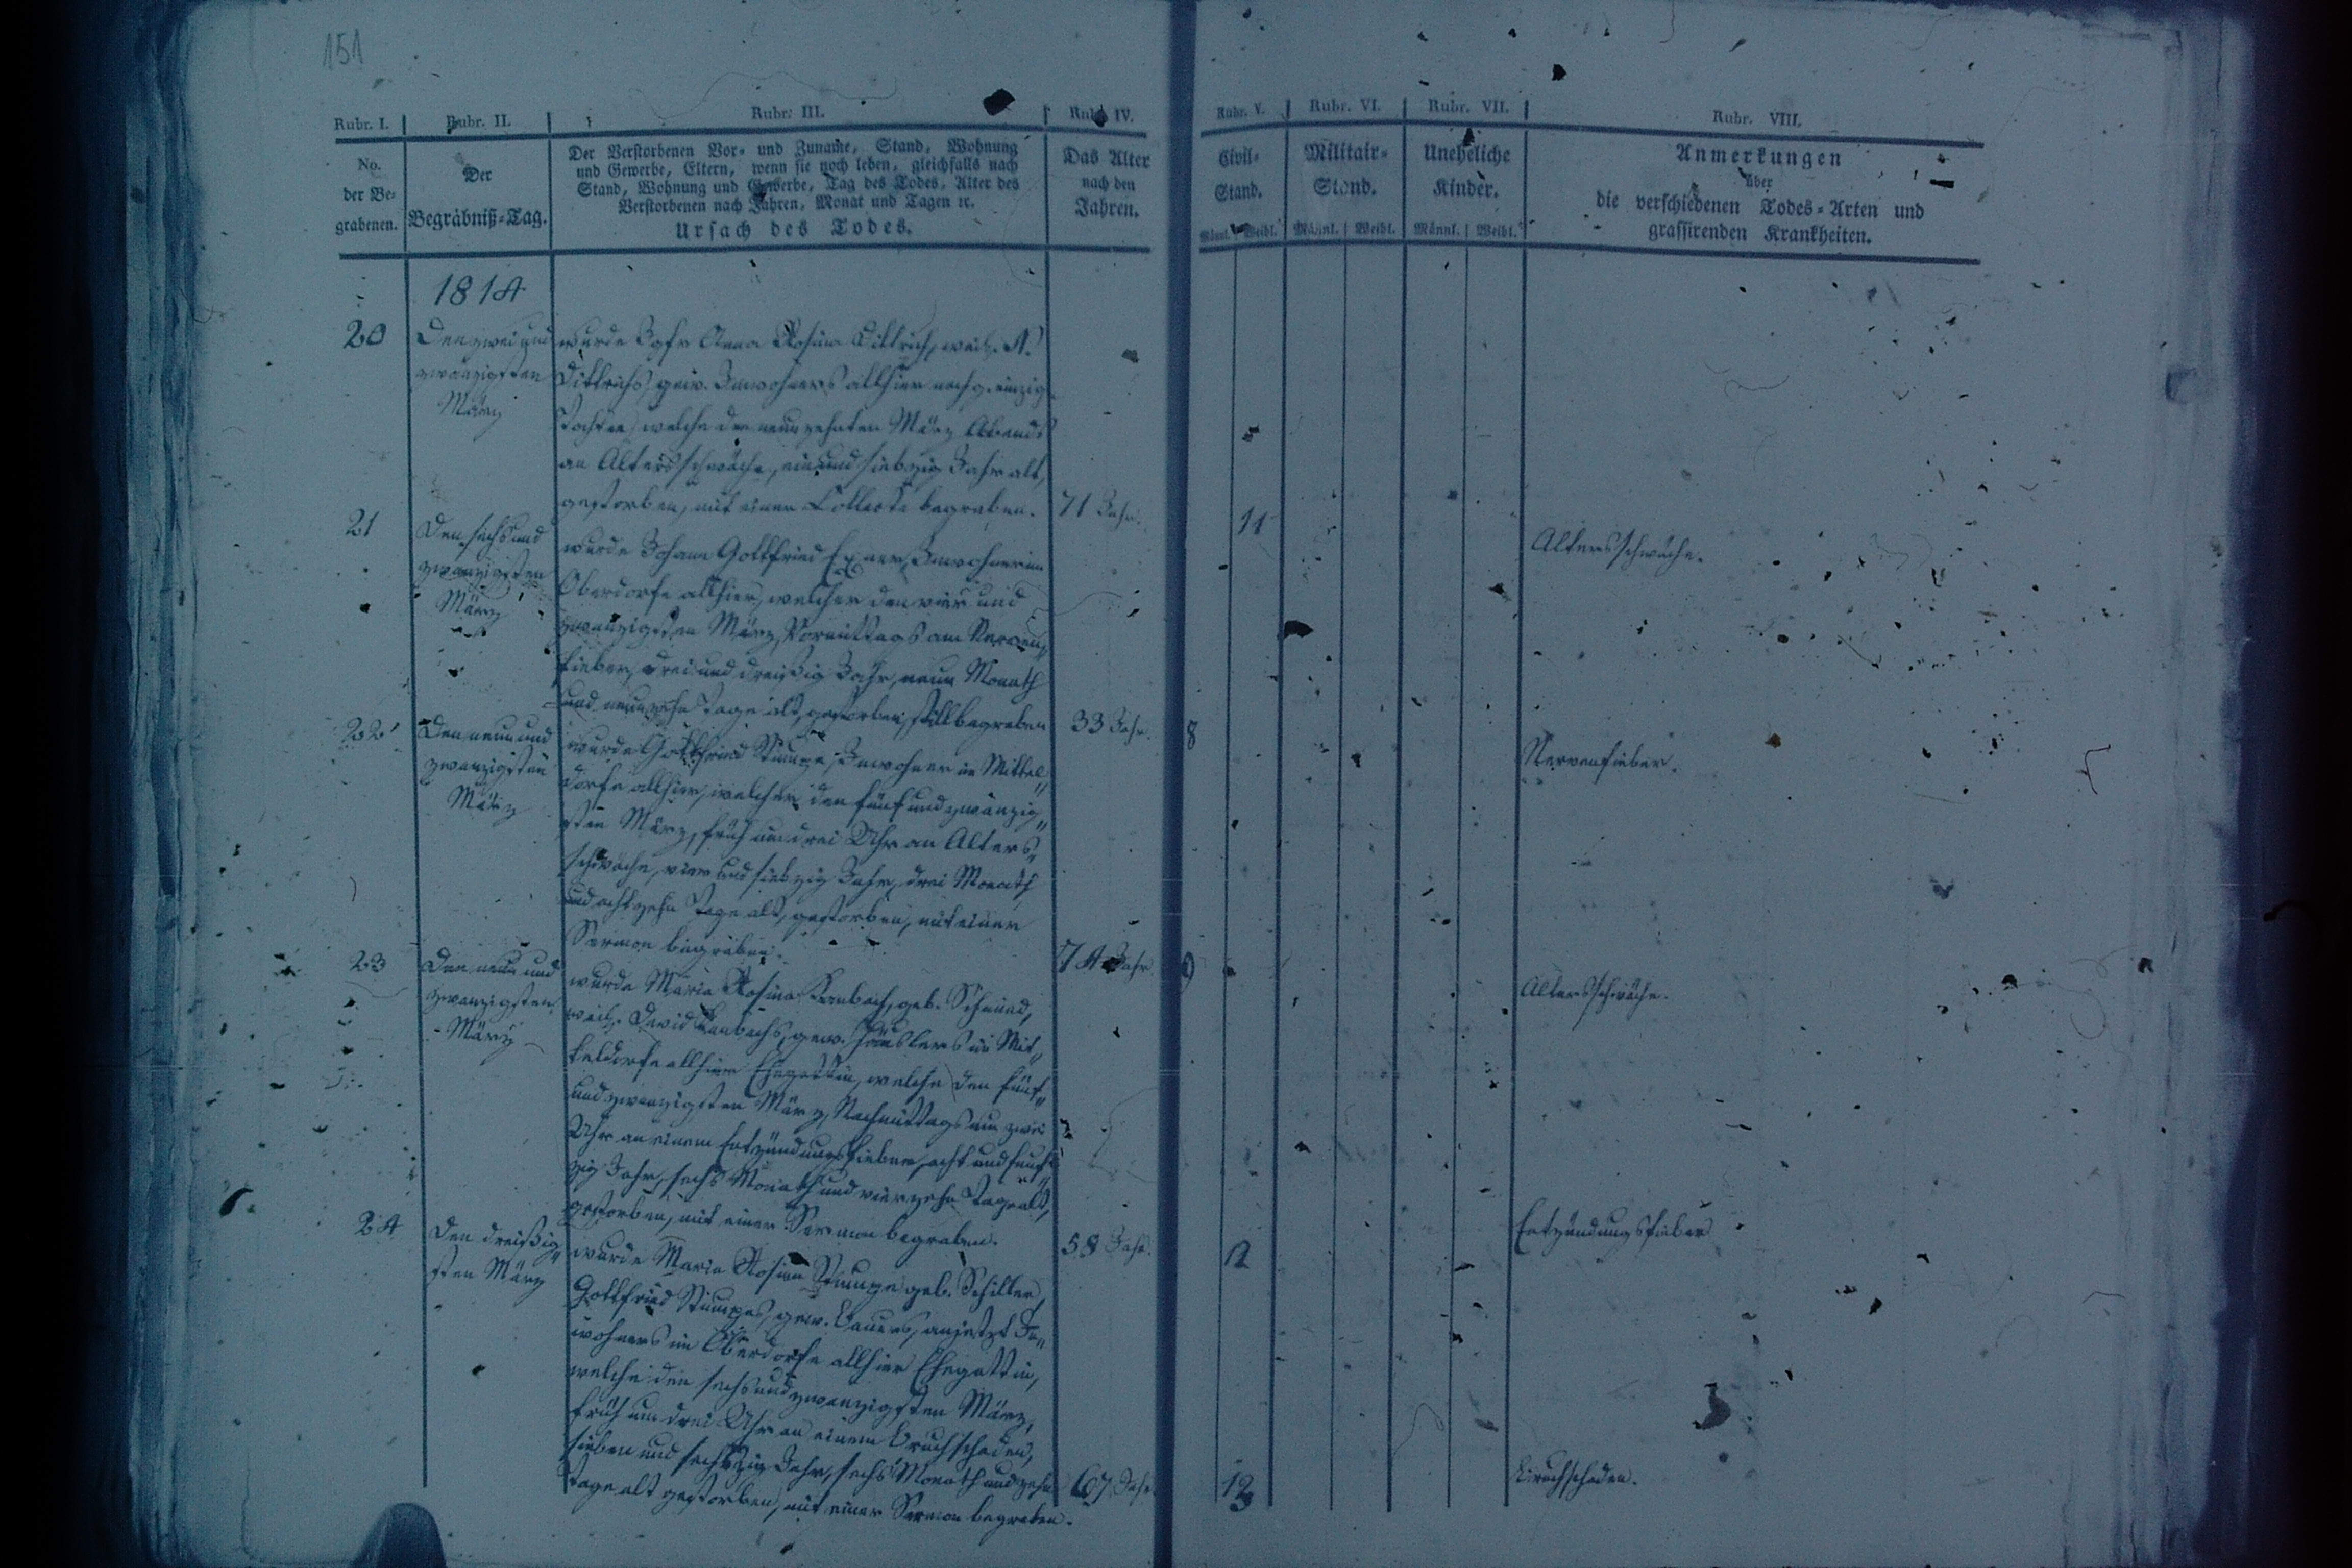 151
Rubr. I.
Rubr. II.
Rubr. III.
Rubr. IV.
Rubr. V.
Rubr. VI.
Rubr. VII.
Rubr. VIII.
No.
der Be-
grabenen.
Der
Begräbniß-Tag.
Der Verstorbenen Vor- und Zuname, Stand, Wohnung
und Gewerbe, Eltern, wenn sie noch leben, gleichfalls nach
Stand, Wohnung und Gewerbe, Tag des Todes, Alter des
Verstorbenen nach Jahren, Monat und Tagen ꝛc.
Ursach des Todes.
Das Alter
nach den
Jahren.
Civil-
Stand.
Männl. Weibl.
Militair-
Stand.
Männl. Weibl.
Uneheliche
Kinder.
Männl. Weibl.
Anmerkungen
über
die verschiedenen Todes-Arten und
grassirenden Krankheiten.
1814
20
Den zwei und
zwanzigsten
März
wurde Jgfr Anna Rosina Dittrich, weil. A.
Dittrichs, gew. Inwohners allhier nachg. einzig.
Tochter, welche den neunzehnten März Abends
an Altersschwäche, ein und siebzig Jahr alt,
gestorben, mit einer Collecte begraben.
71 Jahr.
11
Altersschwäche.
21
Den sechs und
zwanzigsten
März
wurde Johann Gottfried Exner, Inwohner im
Oberdorfe allhier, welcher den vier und
zwanzigsten März, Vormittags am Nerven„
fieber, drei und dreißig Jahr, neun Monath
und neunzehn Tage alt, gestorben, still begraben
33 Jahr.
8
Nervenfieber.
22
Den neun und
zwanzigsten
März
wurde Gottfried Stumpe, Inwohner in Mittel„
dorfe allhier, welcher den fünf und zwanzig„
sten März, früh um drei Uhr an Alters„
schwäche, vier und siebzig Jahr, drei Monath
und achtzehn Tage alt, gestorben, mit einer
Sermon begraben.
74 Jahr.
9
Altersschwäche.
23
Den neun und
zwanzigsten
März
wurde Maria Rosina geb. Schmied,
weil. David gew. Häuslers in Mit„
teldorfe allhier Ehegattin, welche den fünf„
und zwanzigsten März, Nachmittags um zwei
Uhr an einem Entzündungsfieber, acht und funf„
zig Jahr, sechs Monath und vierzehn Tage alt,
gestorben, mit einer Sermon begraben.
58 Jahr.
12
Entzündungsfieber
24
Den dreißig„
sten März
wurde Maria Rosina Stumpe geb. Schiller,
Gottfried Stumpes, gew. Bauers, anjetzt In„
wohners im Oberdorfe allhier Ehegattin,
welche den sechs und zwanzigsten März,
früh um drei Uhr an einem Bruchschaden,
sieben und sechszig Jahr, sechs Monath und zehn
Tage alt gestorben, mit einer Sermon begraben.
67 Jahr
13
Bruchschaden.